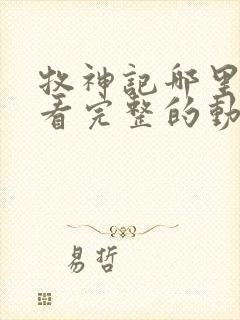 牧神記哪里
看完整的動
易哲